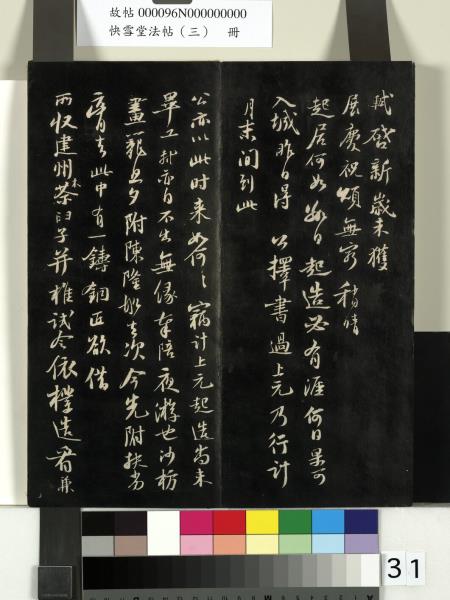 故帖 000096N000000000
快雪堂法帖（三） 冊
軾啓新歲未獲
展慶祝頌無窮稍晴
起居何如數日起造必有涯何日果可
入城昨日得 公擇書過上元乃行計
月末間到此
公亦以此時来如何々竊計上元起造尚未
畢工軾亦自不出無緣奉陪夜游也沙枋
畫籠旦夕附陳隆船去次今先附扶劣
膏去此中有一鑄銅匠欲借
所収建州木茶臼子并椎試令依樣造看兼
31